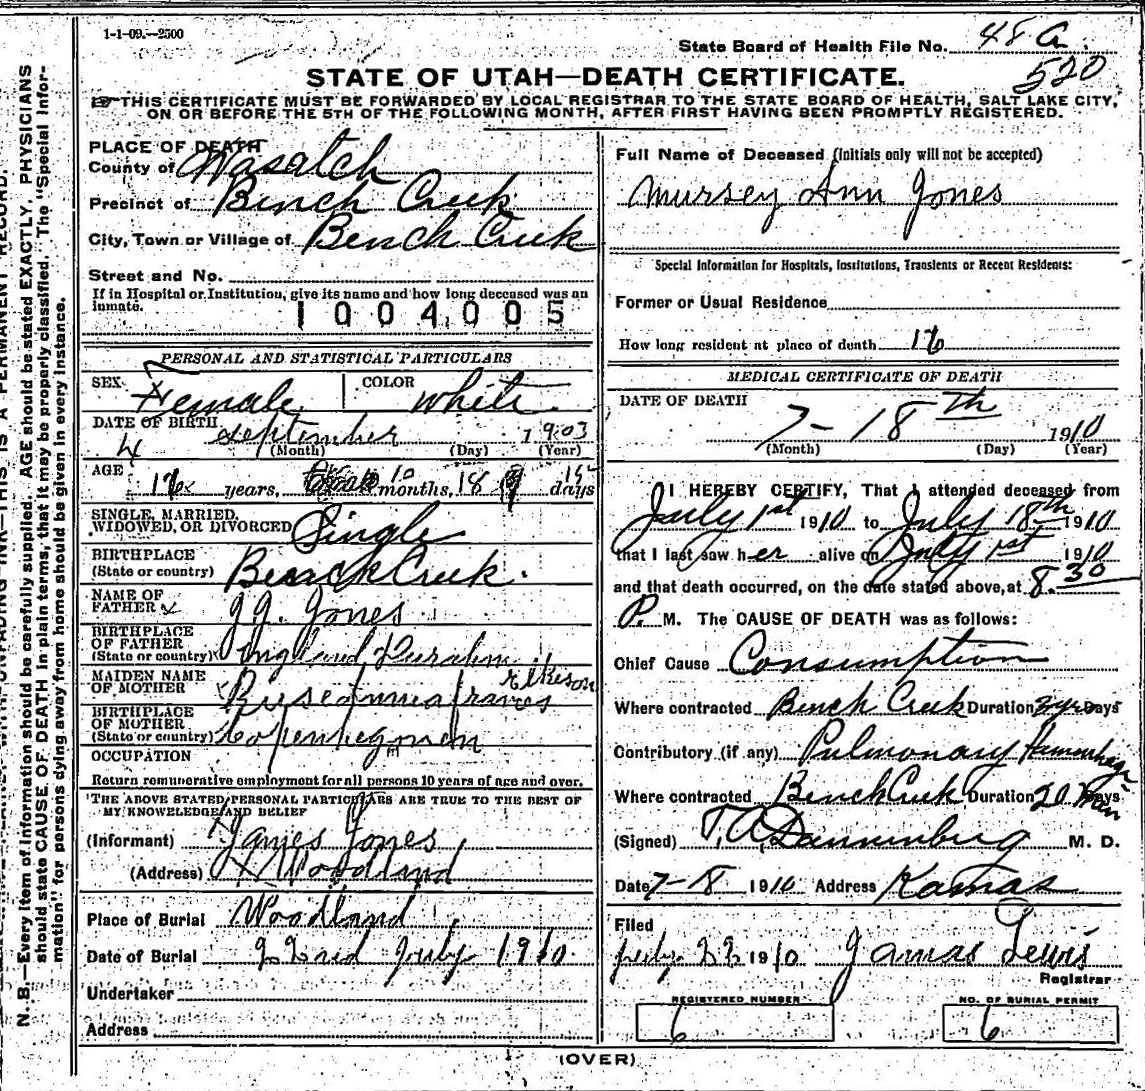 1-1-09.—2500
State Board of Health File No. 48 a.
520
STATE OF UTAH—DEATH CERTIFICATE.
☞THIS CERTIFICATE MUST BE FORWARDED BY LOCAL REGISTRAR TO THE STATE BOARD OF HEALTH, SALT LAKE CITY,
ON OR BEFORE THE 5TH OF THE FOLLOWING MONTH, AFTER FIRST HAVING BEEN PROMPTLY REGISTERED.
PLACE OF DEATH
County of Wasatch
Precinct of Bench Creek
City, Town or Village of Bench Creek
Street and No.
If in Hospital or Institution, give its name and how long deceased was an
inmate.
1004005
PERSONAL AND STATISTICAL PARTICULARS
SEX Female COLOR white
DATE OF BIRTH
4 september 1903
(Month) (Day) (Year)
AGE
16 years, 10 months, 18 15 days
SINGLE, MARRIED,
WIDOWED, OR DIVORCED Single
BIRTHPLACE
(State or country) Bench Creek.
NAME OF
FATHER J. J. Jones
BIRTHPLACE
OF FATHER
(State or country) England
MAIDEN NAME
OF MOTHER
BIRTHPLACE
OF MOTHER
(State or country)
OCCUPATION
Return remunerative employment for all persons 10 years of age and over.
THE ABOVE STATED PERSONAL PARTICULARS ARE TRUE TO THE BEST OF
MY KNOWELEDGE AND BELIEF
(Informant) James Jones
(Address) Woodland
Place of Burial Woodland
Date of Burial 22nd July 1910.
Undertaker
Address
Full Name of Deceased (Initials only will not be accepted)
Mursey Ann Jones
Special Information for Hospitals, Institutions, Transients or Recent Residents:
Former or Usual Residence
How long resident at place of death 16
MEDICAL CERTIFICATE OF DEATH
DATE OF DEATH
7-18th 1910
(Month) (Day) (Year)
I HEREBY CERTIFY, That I attended deceased from
July 1st 1910 to July 18th 1910
that I last saw her alive on July 1st 1910
and that death occurred, on the date stated above, at 8.30
P. M. The CAUSE OF DEATH was as follows:
Chief Cause Consumption
Where contracted Bench Creek Duration 2 yrs Days
Contributory (if any) Pulmonary Hemorrhage
Where contracted Bench Creek Duration 20 Days
(Signed) T. A. Dannenburg M. D.
Date 7-18 1910 Address Kamas
Filed
July 22 1910 James Lewis
Registrar
REGISTERED NUMBER
6
NO. OF BURIAL PERMIT
6
(OVER)
N. B.—Every item of information should be carefully supplied. AGE should be stated EXACTLY. PHYSICIANS
should state CAUSE OF DEATH in plain terms, that it may be properly classified. The "Special Infor-
mation" for persons dying away from home should be given in every instance.